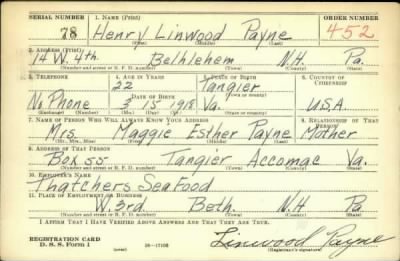 SERIAL NUMBER 1. NAME (Print) ORDER NUMBER
78 Henry Linwood Payne 452
(First) (Middle) (Last)
2. ADDRESS (Print)
14 W. 4th. Bethlehem N.H. Pa.
(Number and street or R. F. D. number) (Town) (County) (State)
3. TELEPHONE 4. AGE IN YEARS 5. PLACE OF BIRTH 6. COUNTRY OF CITIZENSHIP
22 Tangier
DATE OF BIRTH (Town or county)
No Phone 3 15 1918 Va. U.S.A.
(Exchange) (Number) (Mo.) (Day) (Yr.) (State or country)
7. NAME OF PERSON WHO WILL ALWAYS KNOW YOUR ADDRESS 8. RELATIONSHIP OF THAT PERSON
Mrs. Maggie Esther Payne Mother
(Mr., Mrs., Miss) (First) (Middle) (Last)
9. ADDRESS OF THAT PERSON
Box 55 Tangier Accomac Va.
(Number and street or R. F. D. number) (Town) (County) (State)
10. EMPLOYER'S NAME
Thatchers Sea Food
11. PLACE OF EMPLOYMENT OR BUSINESS
W. 3rd. Beth. N.H Pa
(Number and street or R. F. D. number) (Town) (County) (State)
I AFFIRM THAT I HAVE VERIFIED ABOVE ANSWERS AND THAT THEY ARE TRUE.
REGISTRATION CARD
D. S. S. Form 1 (over) 16—17105 Linwood Payne
(Registrant's signature)